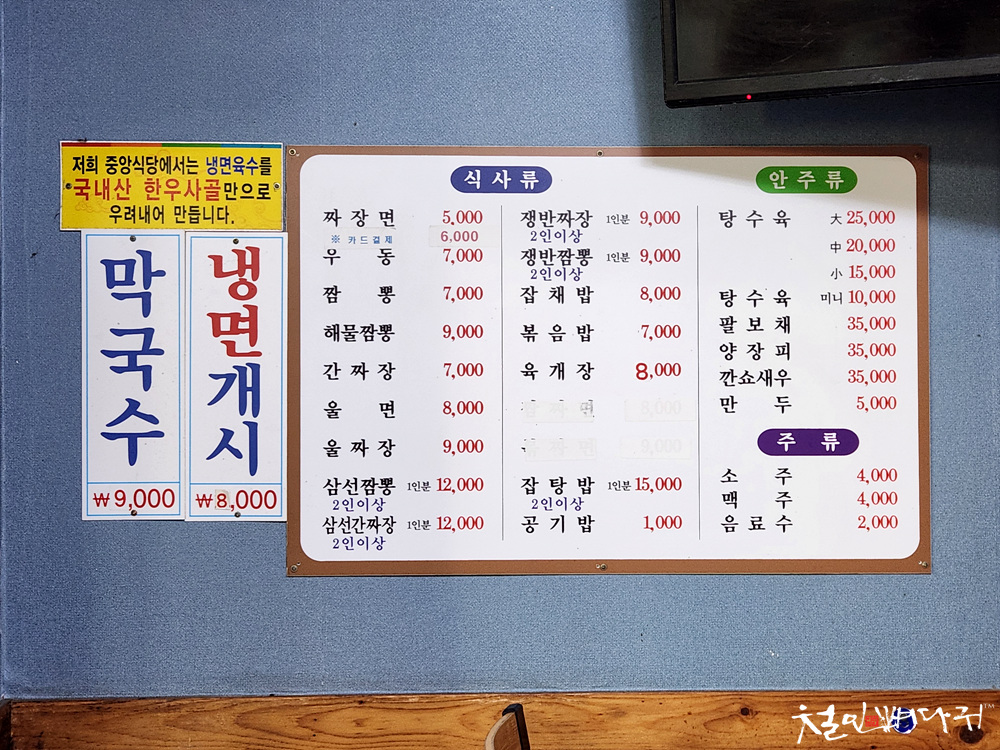 저희 중앙식당에서는 냉면육수를
국내산 한우사골만으로
우려내어 만듭니다.
막국수
₩9,000
냉면개시
₩8,000
식사류
짜장면 5,000
※ 카드결제 6,000
우동 7,000
짬뽕 7,000
해물짬뽕 9,000
간짜장 7,000
울면 8,000
울짜장 9,000
삼선짬뽕 1인분 12,000
2인이상
삼선간짜장 1인분 12,000
2인이상
쟁반짜장 1인분 9,000
2인이상
쟁반짬뽕 1인분 9,000
2인이상
잡채밥 8,000
볶음밥 7,000
육개장 8,000
8,000
9,000
잡탕밥 1인분 15,000
2인이상
공기밥 1,000
안주류
탕수육 大 25,000
中 20,000
小 15,000
탕수육 미니 10,000
팔보채 35,000
양장피 35,000
깐쇼새우 35,000
만두 5,000
주류
소주 4,000
맥주 4,000
음료수 2,000
철민뼈다귀™